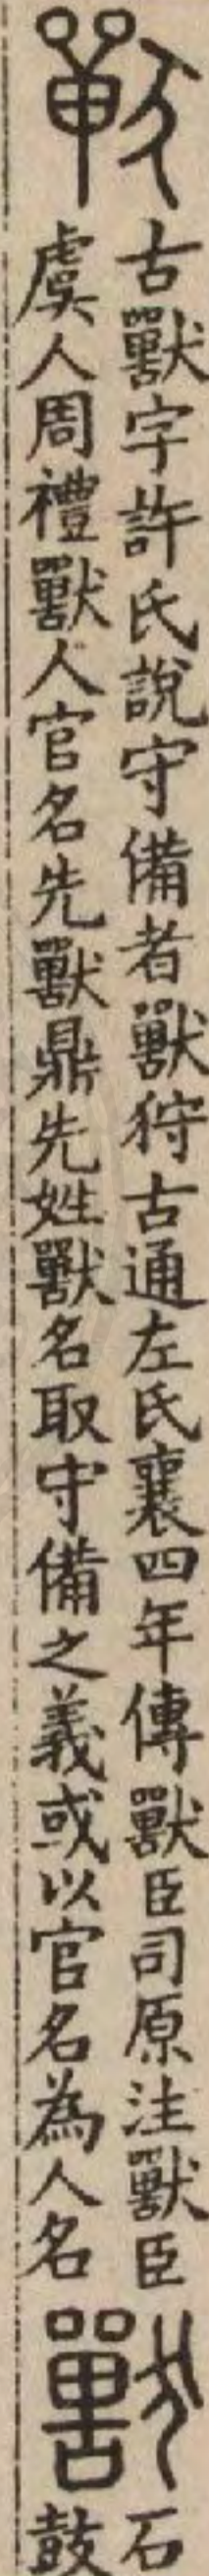 古獸字許氏說守備者獸狩古通左氏襄四年傳獸臣司原注獸臣
虞人周禮獸人官名先獸鼎先姓獸名取守備之義或以官名為人名
獸
石
鼓